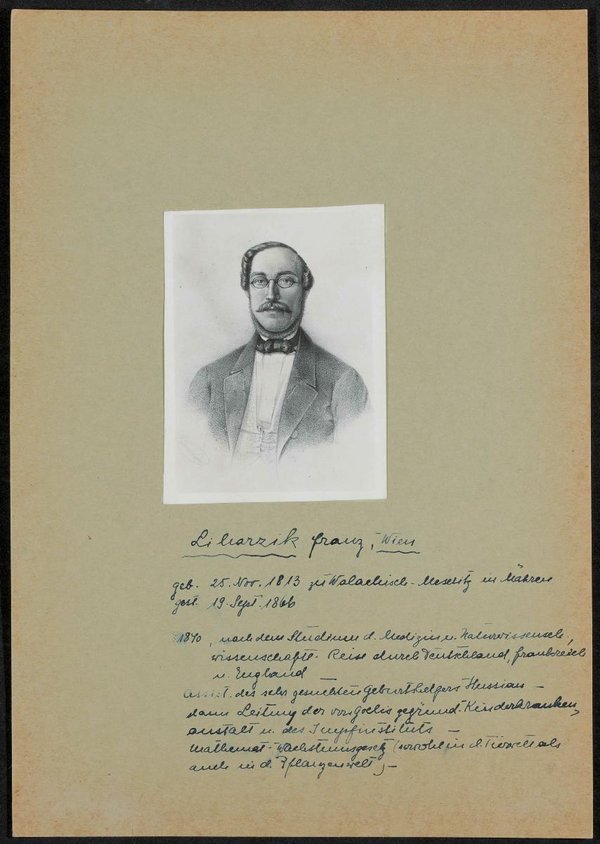 Liharzik Franz, Wien
geb. 25. Nov. 1813 zu Walachisch-Meseritz in Mähren
gest. 19. Sept. 1866
1840, nach dem Studium d. Medizin u. Naturwissensch.,
wissenschaftl. Reise durch Deutschland, Frankreich
u. England —
Assist. des sehr gesuchten Geburtshelfers Hussian —
dann Leitung der von Goelis gegründ. Kinderkranken,
anstalt u. des Impfinstituts —
Mathemat. Wachstumsgesetz (sowohl in d. Tierwelt als
auch in d. Pflanzenwelt) —